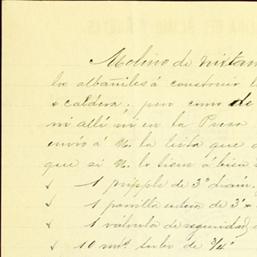 Molino de Nixtam
los albañiles á construir l
s caldera; pero como de
ni allí ni en la Presa
envío á V. la lista que
que si V. lo tiene á bien s
1 de 3" diám.
1 parrilla de 3' x
1 válvula de seguridad,
10 mts. tubo de 3/4"